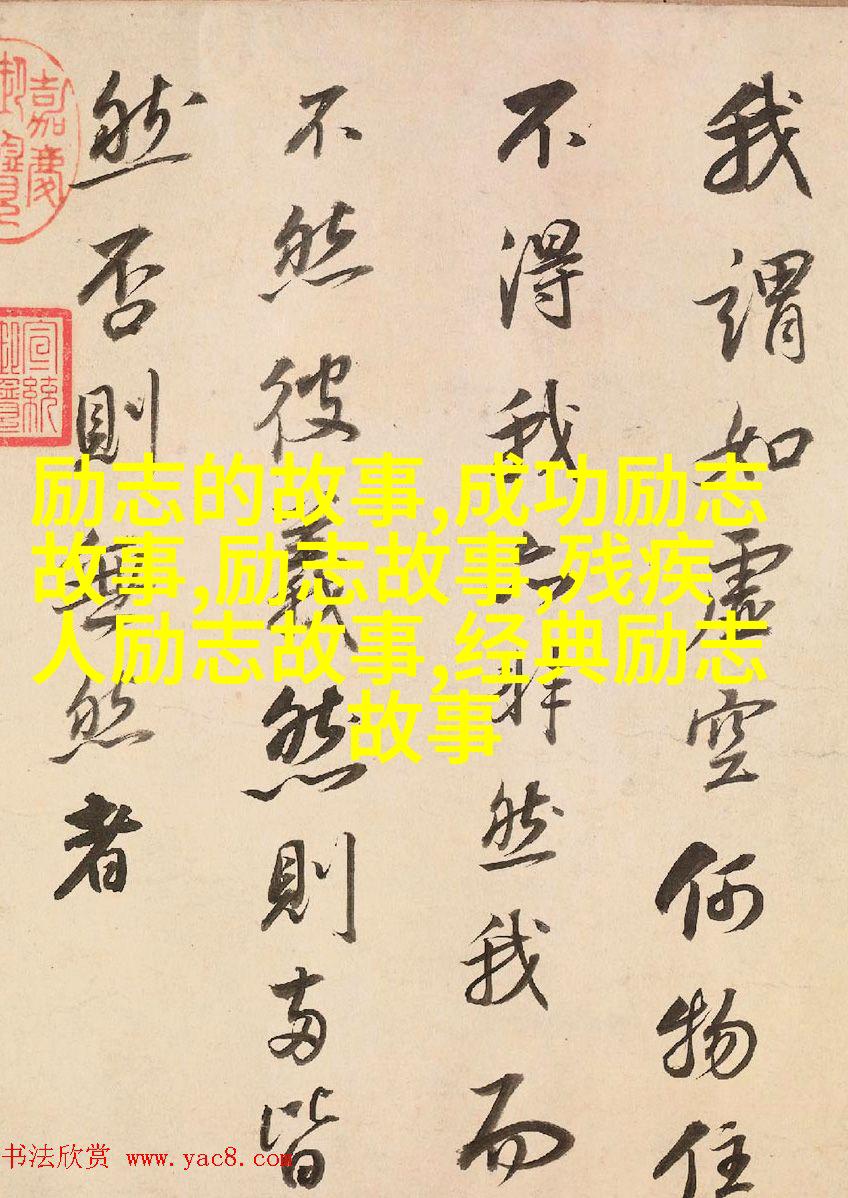 我謂如虛空何物住
不得我亦非然我而
不然彼義然然則兩皆
然否則無然者
励志的故事,成功励志
故事,励志故事,残疾
人励志故事,经典励志
故事
嘉慶
宣統
书法欣赏 www.yac8.com